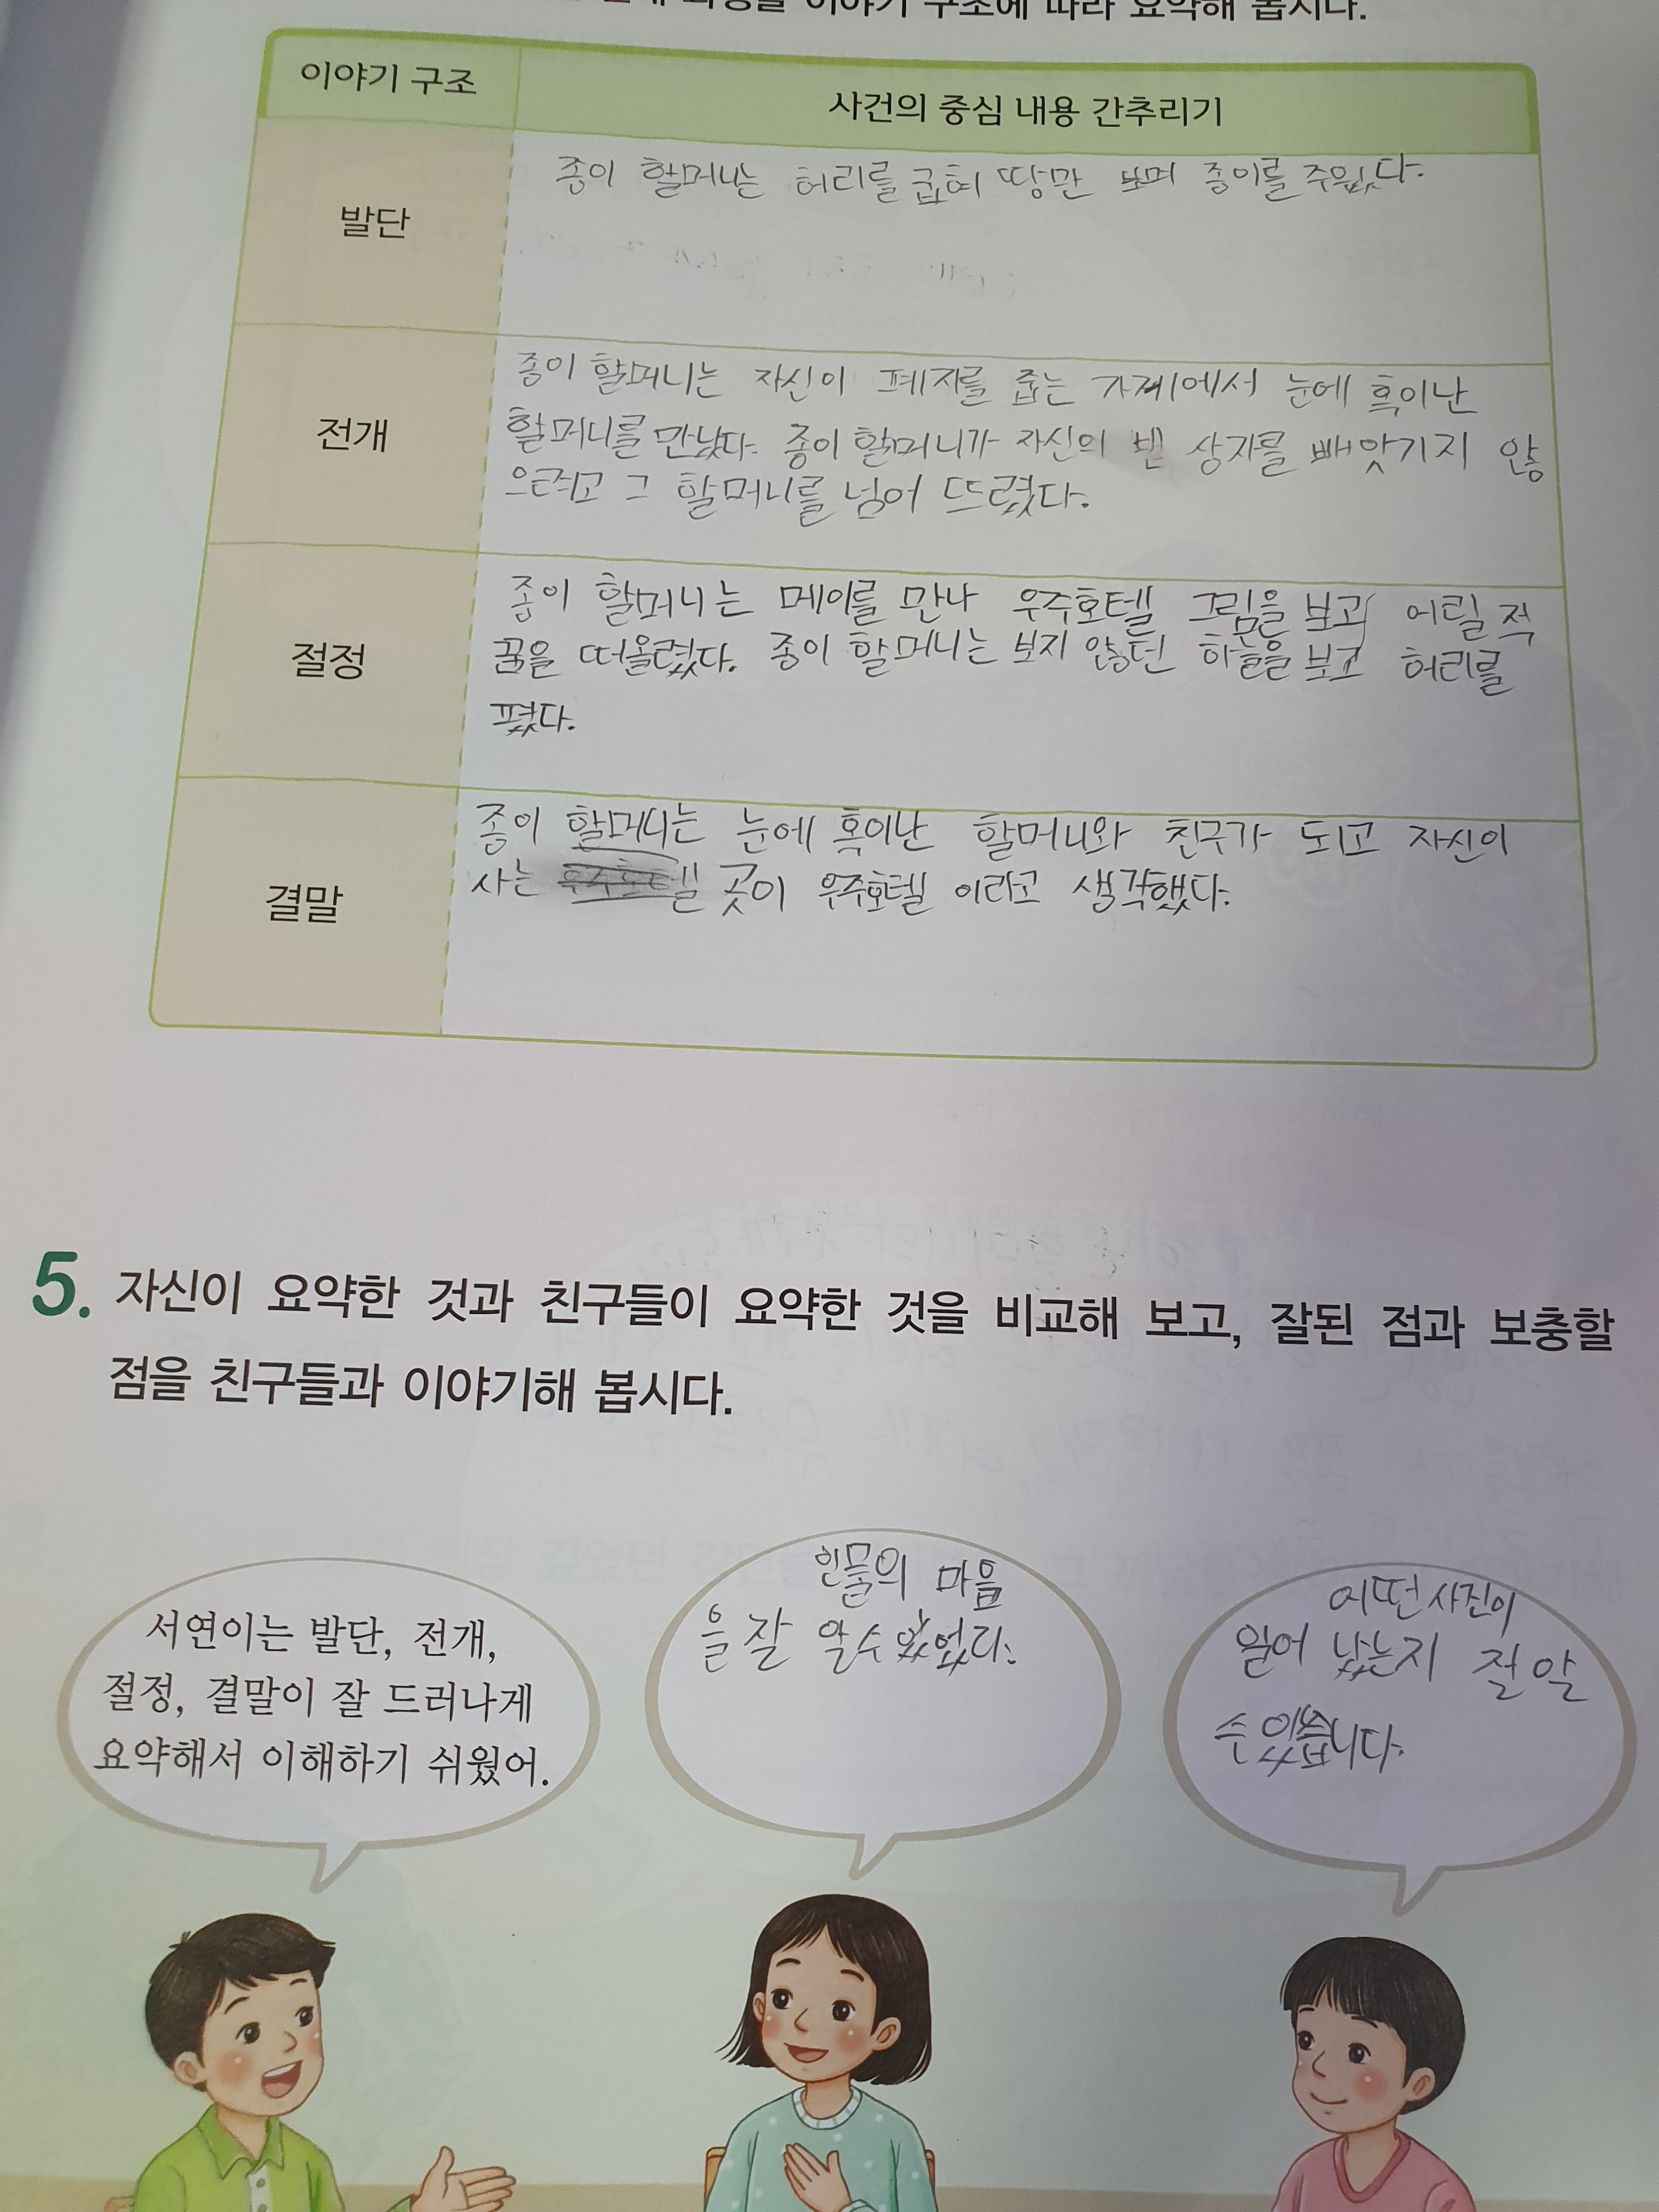 이야기 구조에 따라 요약해 봅시다.
이야기 구조
사건의 중심 내용 간추리기
발단
종이 할머니는 허리를 굽혀 땅만 보며 종이를 주웠다.
전개
종이 할머니는 자신이 폐지를 줍는 가께에서 눈에 혹이난
할머니를 만났다. 종이 할머니가 자신의 빈 상자를 빼앗기지 않
으려고 그 할머니를 넘어 뜨렸다.
절정
종이 할머니는 메이를 만나 우주호텔 그림을 보고 어릴 적
꿈을 떠올렸다. 종이 할머니는 보지 않던 하늘을 보고 허리를
폈다.
결말
종이 할머니는 눈에 혹이난 할머니와 친구가 되고 자신이
사는 곳이 우주호텔 이라고 생각했다.
5. 자신이 요약한 것과 친구들이 요약한 것을 비교해 보고, 잘된 점과 보충할
점을 친구들과 이야기해 봅시다.
서연이는 발단, 전개,
절정, 결말이 잘 드러나게
요약해서 이해하기 쉬웠어.
인물의 마음
을 잘 알수있었다.
어떤 사진이
일어 났는지 잘 알
수 있습니다.